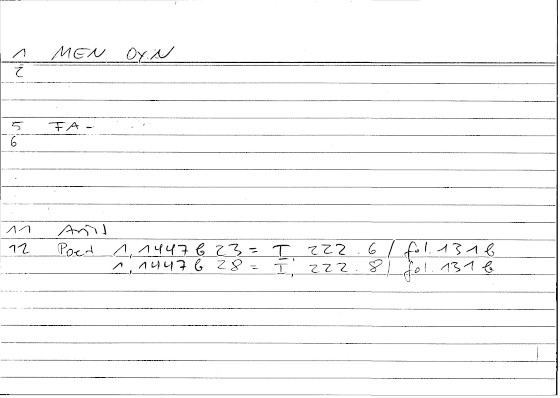 1 MEN OYN
2
5 FA-
6
11 Arist
12 Poet 1, 1447 b 23 = I, 222. 6 / fol. 131 b
1, 1447 b 28 = I, 222. 8 / fol. 131 b